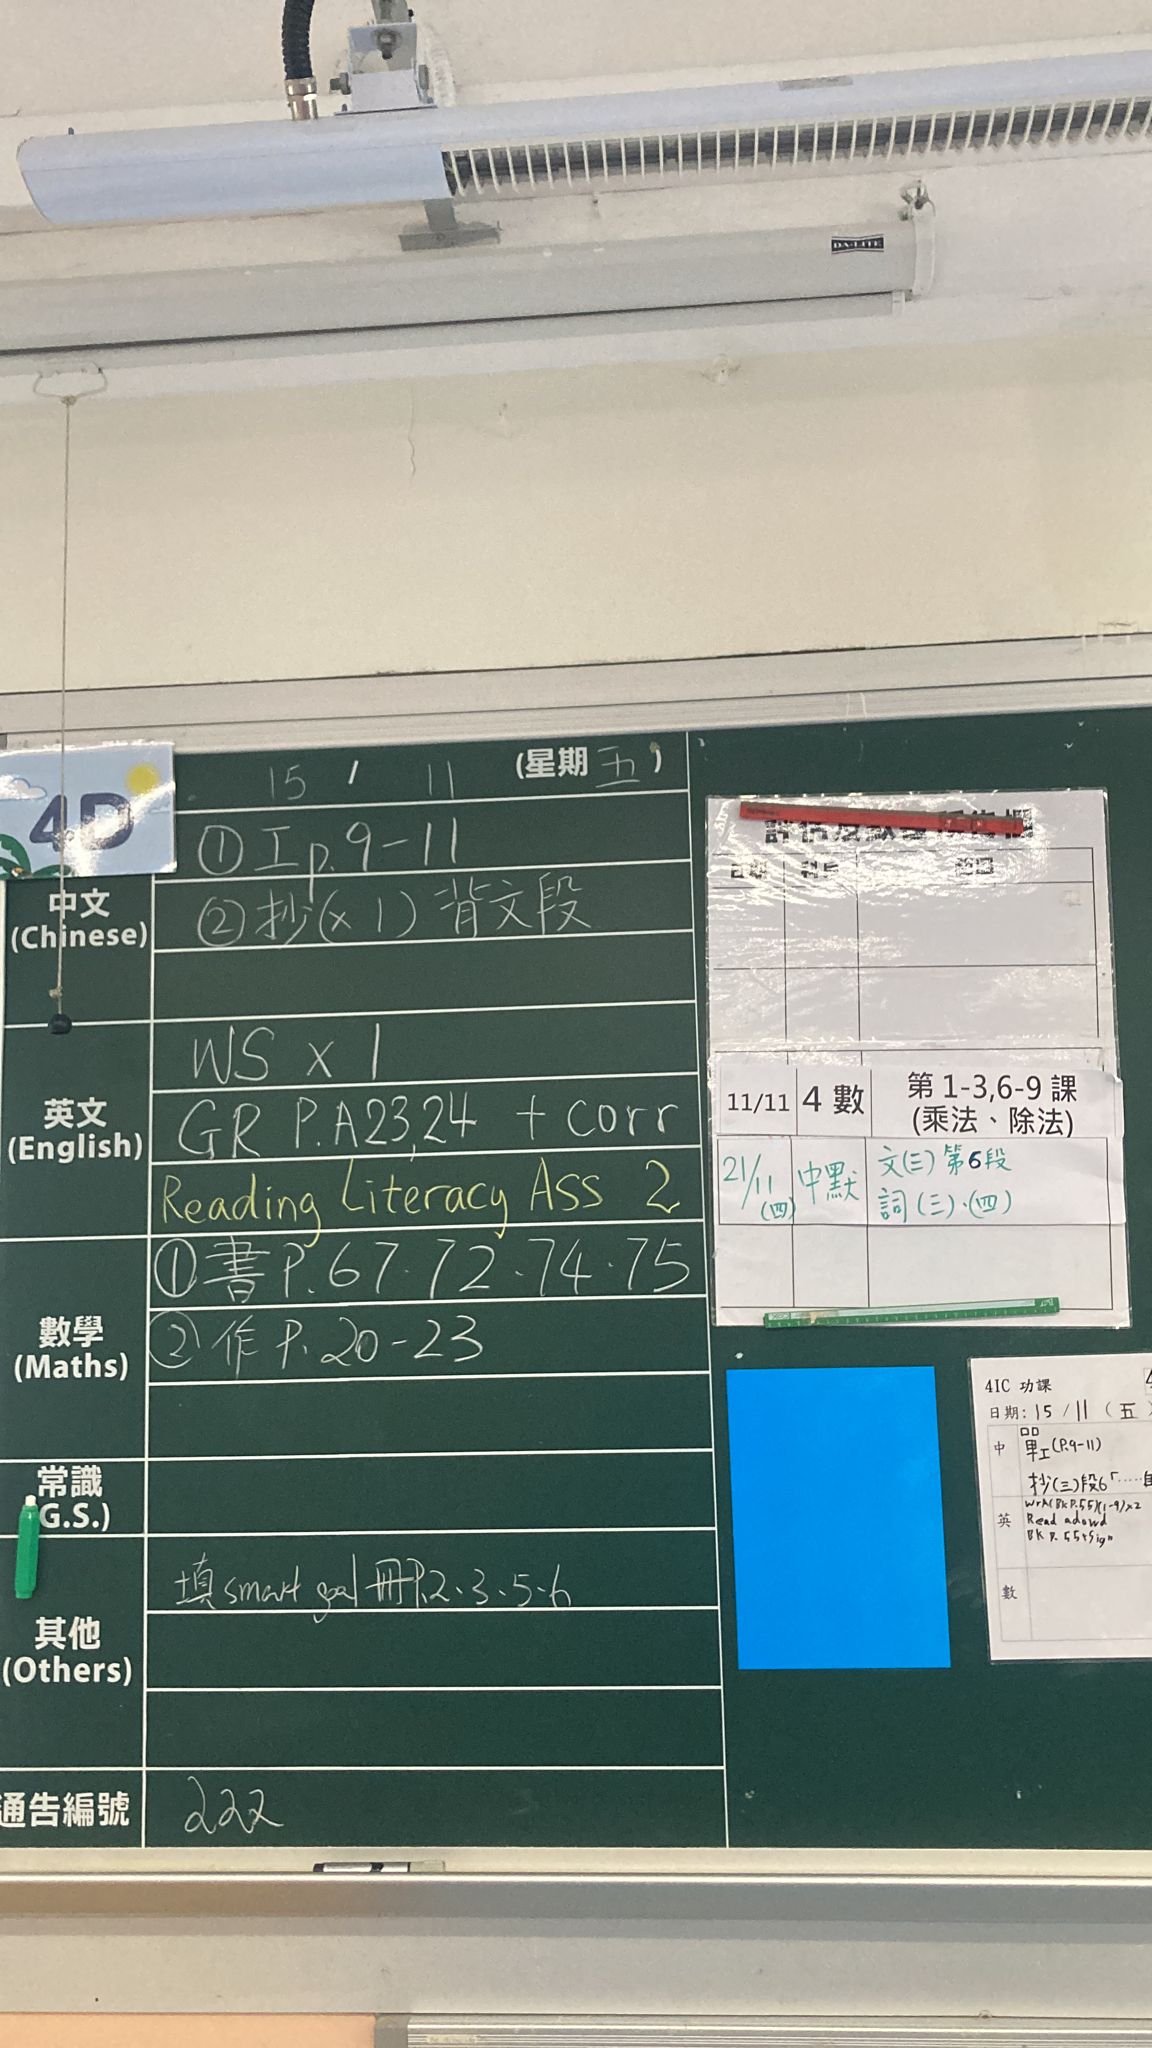 DA-LITE
4D
15 / 11 (星期五)
中文
(Chinese)
①工p.9-11
②抄(x1) 背文段
英文
(English)
WS x 1
GR P.A23,24 + corr
Reading Literacy Ass 2
數學
(Maths)
①書P.67.72.74.75
②作P.20-23
常識
G.S.)
其他
(Others)
填smart goal冊P.2.3.5.6
通告編號
222
11/11 4數 第1-3,6-9課
(乘法、除法)
21/11 (四) 中默 文(三)第6段
詞(三).(四)
4IC 功課
日期: 15/11 (五)
中 (P.9-11)
抄(三)段6「……
英
Read adowd
BK P.55+sign
數